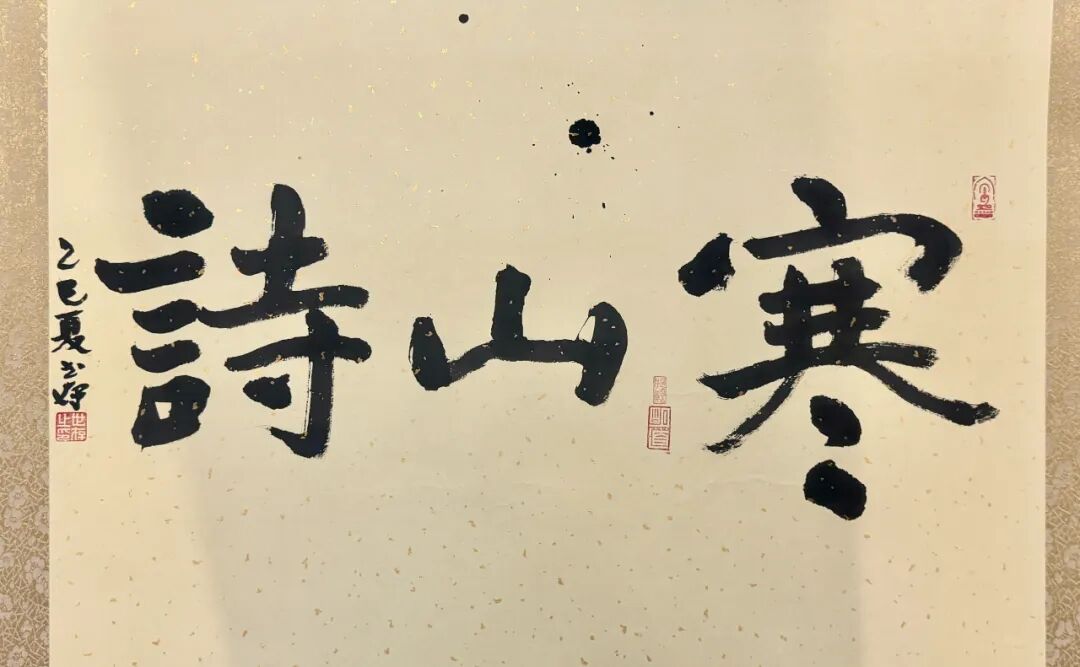 寒山詩
乙巳夏